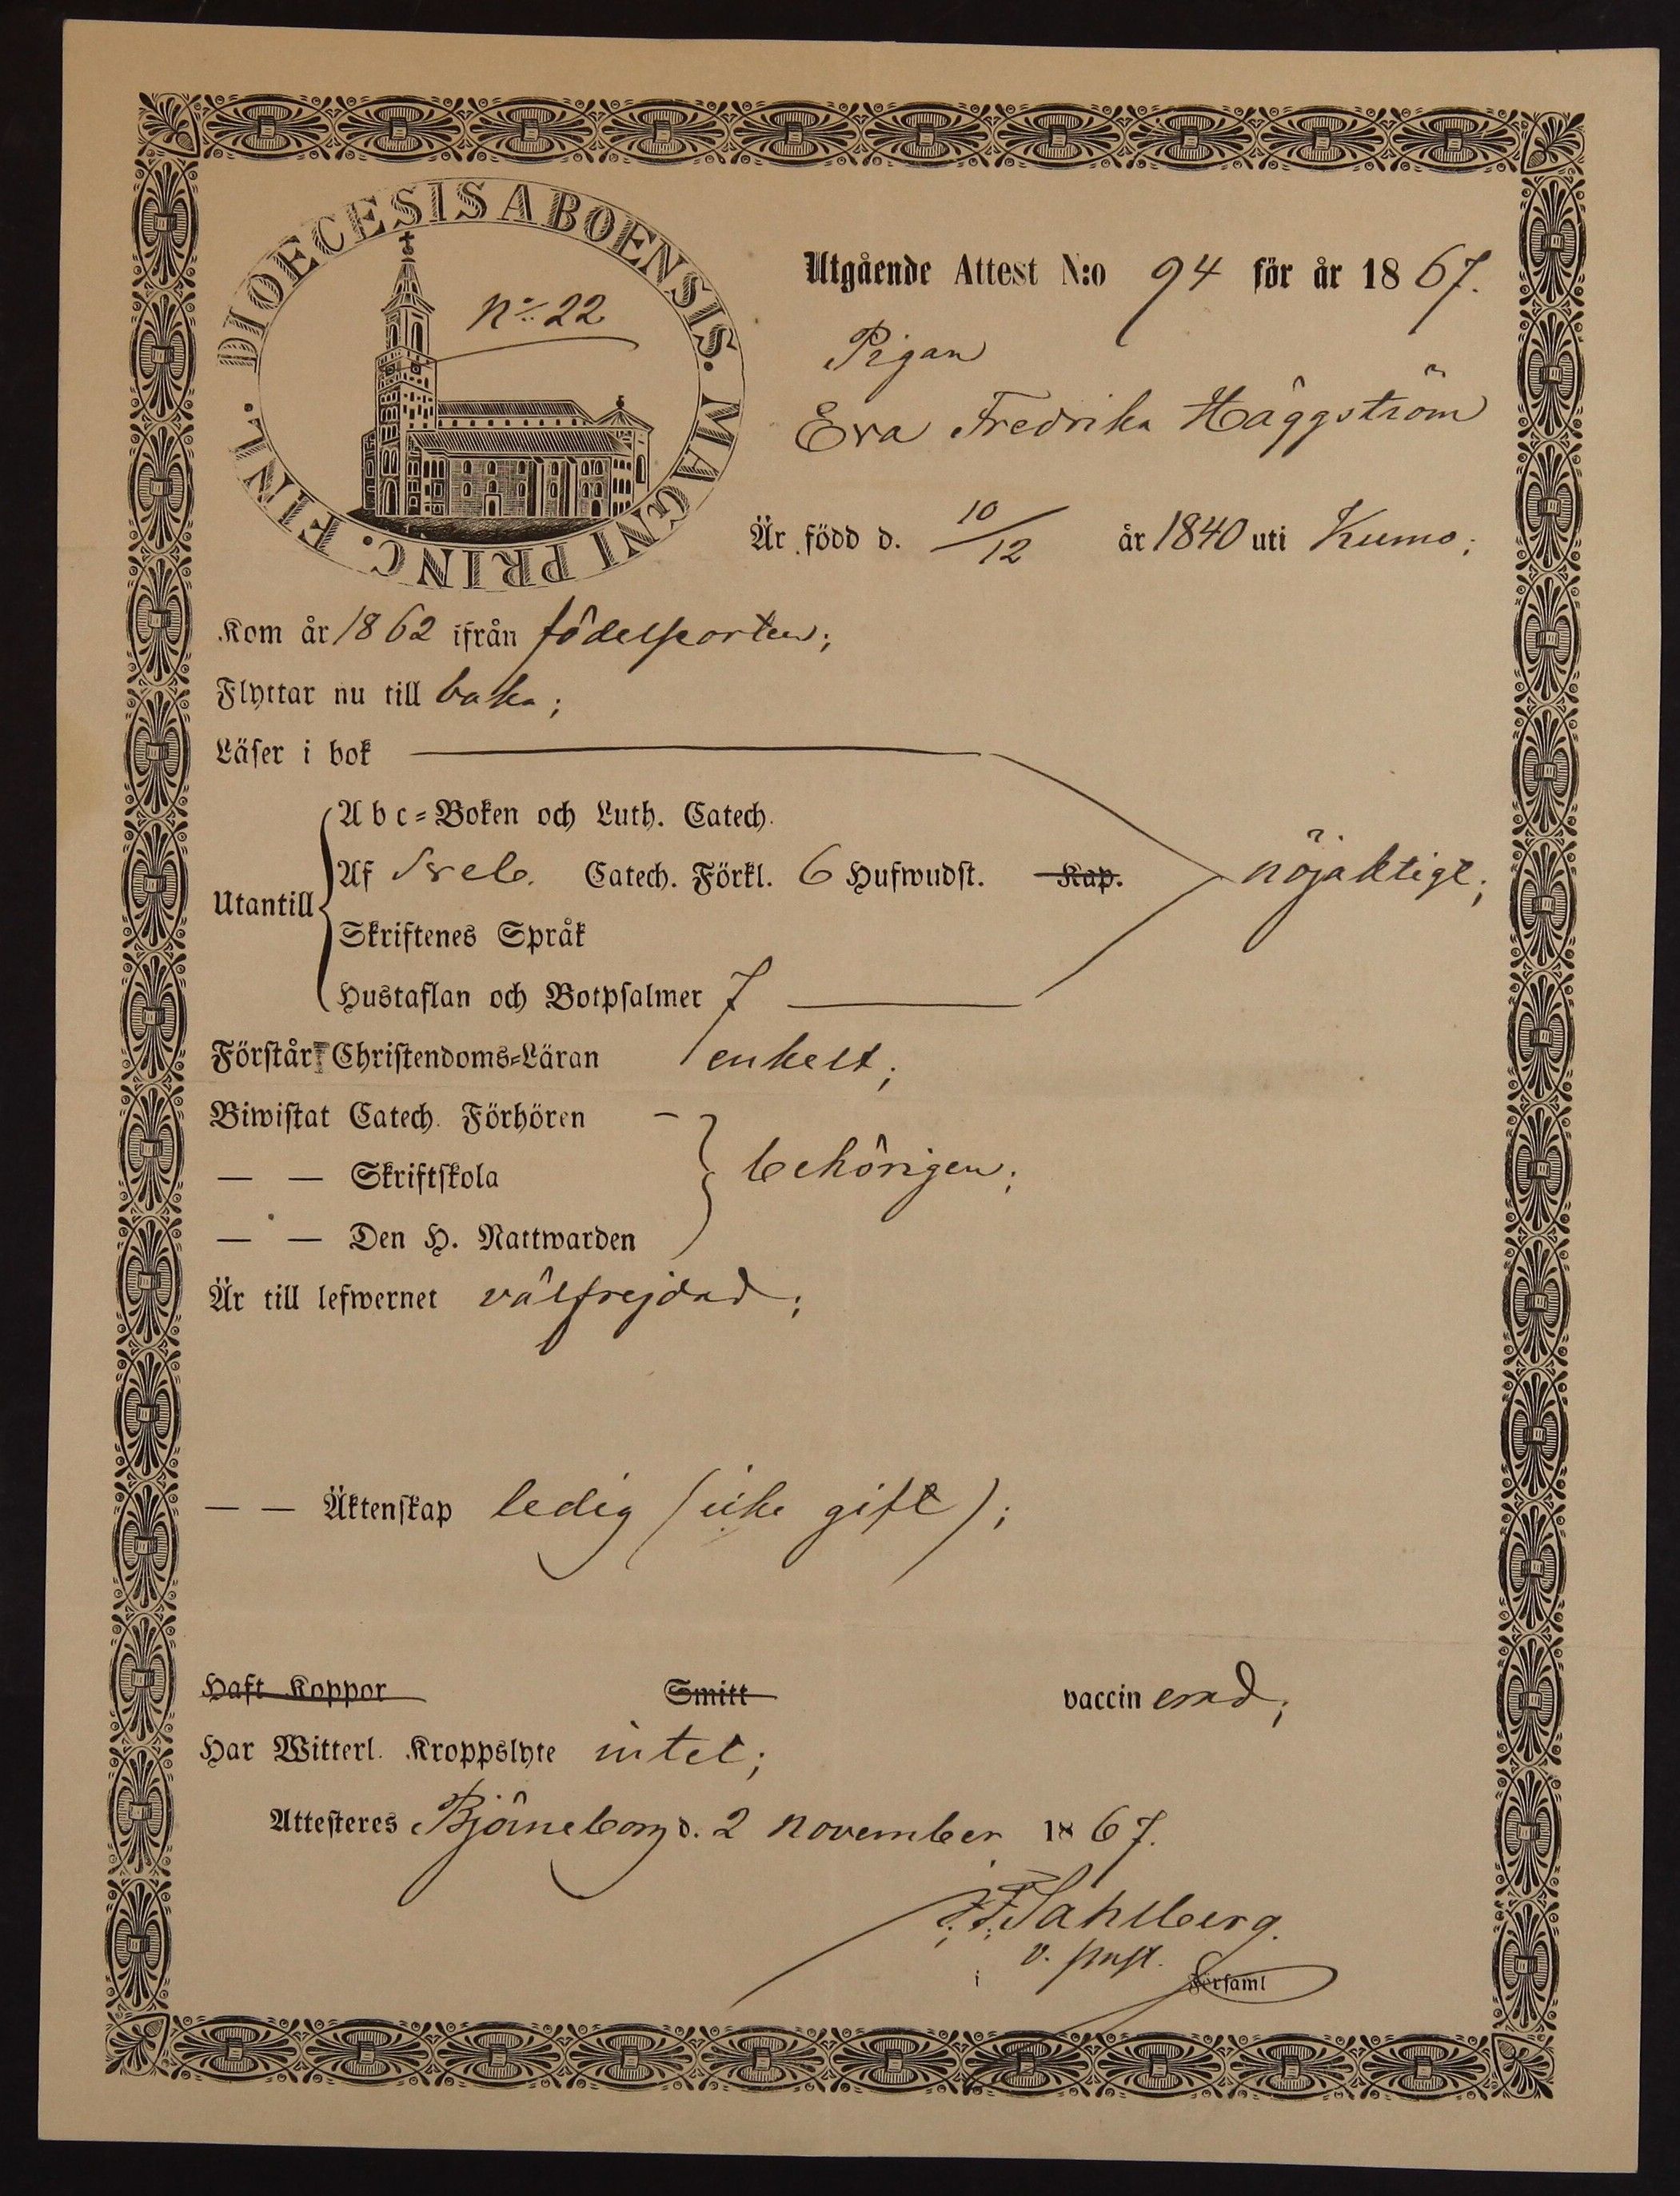 DIOECESIS ABOENSIS. MAGNI PRINC. FINL.
N:o 22
Utgående Attest N:o 94 för år 1867.
Pigan
Eva Fredrika Häggström
Är född d. 10/12 år 1840 uti Kumo;
Kom år 1862 ifrån födelseorten;
Flyttar nu till baka;
Läser i bok
Abc=Boken och Luth. Catech.
Utantill Af Sveb. Catech. Förkl. 6 Hufwudst. Kap. nöjaktigt;
Skriftenes Språk
Hustaflan och Botpsalmer 7
Förstår Christendoms=Läran enkelt;
Biwistat Catech. Förhören -
— — Skriftskola behörigen;
— — Den H. Nattwarden
Är till lefwernet välfrejdad;
— — Äktenskap ledig (icke gift);
Haft Koppor Smitt vaccinerad;
Har Witterl. Kroppslyte intet;
Attesteres Björneborg d. 2 november 1867.
Sahlberg.
v. past.
i Församl